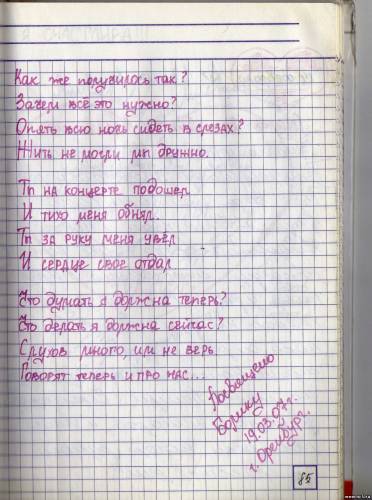 Как же получилось так?
Зачем всё это нужно?
Опять всю ночь сидеть в слезах?
Жить не могли мы дружно.
Ты на концерте подошел
И тихо меня обнял.
Ты за руку меня увёл
И сердце свое отдал
Что думать я должна теперь?
Что делать я должна сейчас?
Слухов много, им не верь
Говорят теперь и про нас...
Посвящено
Борику
19.03.07г.
г. Оренбург.
85